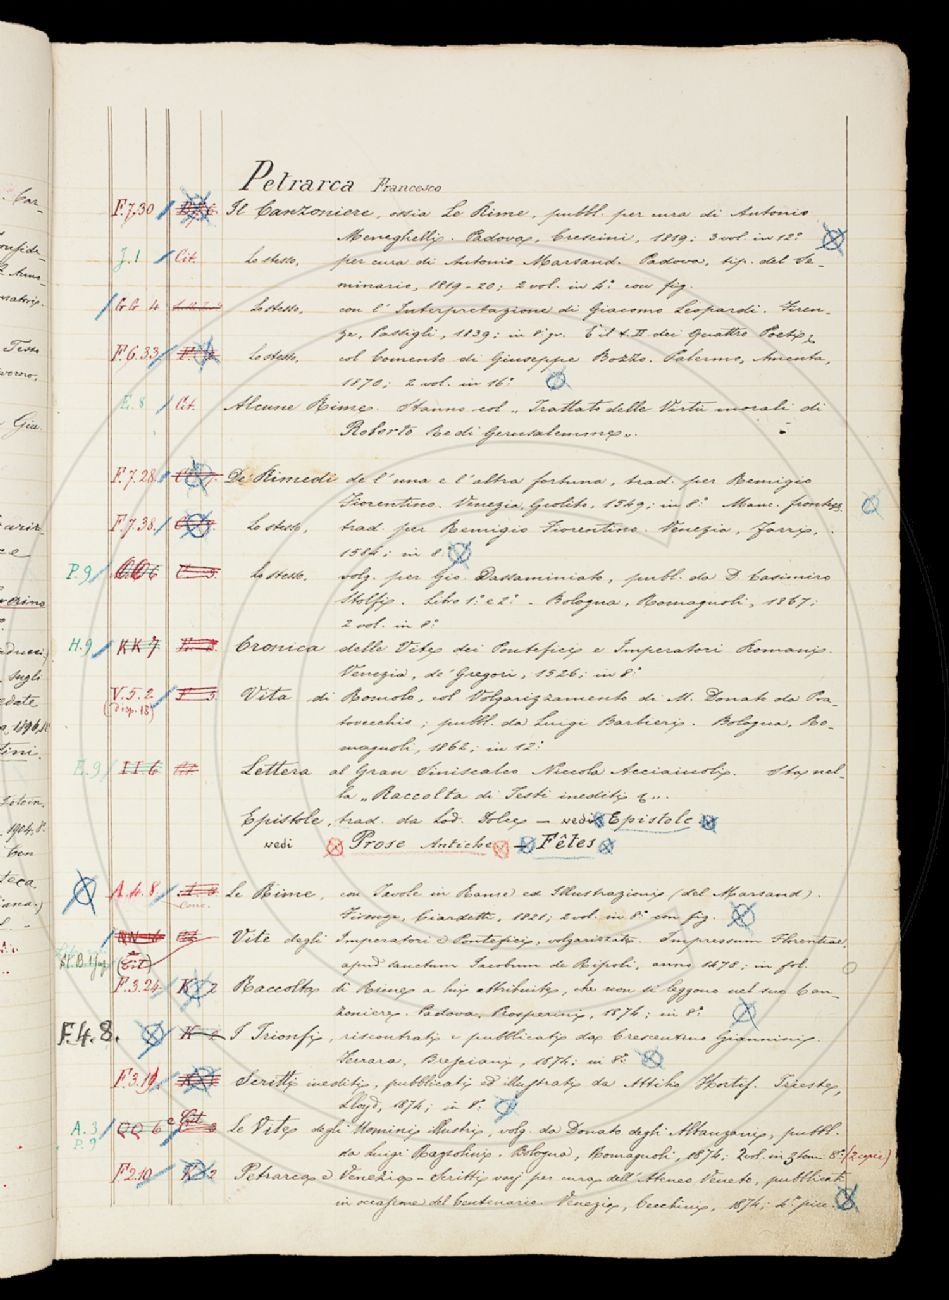 Petrarca Francesco
F.7.30 Il Canzoniere, ossia Le Rime, pubbl. per cura di Antonio
Meneghelli. Padova, Crescini, 1819; 3 vol. in 12.°
J.1 Cit. Lo stesso, per cura di Antonio Marsand. Padova, tip. del Se-
minario, 1819-20; 2 vol. in 4.° con fig.
GG 4 Lo stesso, con l'Interpretazione di Giacomo Leopardi. Firen-
ze, Passigli, 1839; in 8.° gr. È il t. II dei Quattro Poeti.
F.6.33 Lo stesso, col Comento di Giuseppe Bozzo. Palermo, Amenta,
1870; 2 vol. in 16.°
E.8 Cit. Alcune Rime. Stanno col „Trattato delle Virtù morali di
Roberto Re di Gerusalemme„.
F.7.28 De' Rimedi de l'una e l'altra fortuna, trad. per Remigio
Fiorentino. Venezia, Giolito, 1549; in 8.° Manc. frontesp.
F.7.38 Lo stesso, trad. per Remigio Fiorentino. Venezia, Farri,
1584; in 8.°
P.9 QQ 6 Lo stesso, volg. per Gio. Dassaminiato, pubbl. da D. Casimiro
Stolfi. Libo 1.° e 2.° - Bologna, Romagnoli, 1867;
2 vol. in 8.°
H.9 KK 7 Cronica delle Vite dei Pontefici e Imperatori Romani.
Venezia, de' Gregori, 1526; in 8.°
V.5.2 Vita di Romolo, col Volgarizzamento di M. Donato da Pra-
(disp. 18) tovecchio; pubbl. da Luigi Barbieri. Bologna, Ro-
magnoli, 1862; in 12.°
E.9 II 6 Lettera al Gran Siniscalco Niccola Acciaiuoli. Sta nel-
la „Raccolta di Testi inediti &„.
Epistole, trad. da Lod. Dolce — vedi Epistole
vedi Prose Antiche — Fêtes
A.4.8 Le Rime, con Tavole in Rame ed Illustrazioni (del Marsand).
Firenze, Ciardetti, 1821; 2 vol. in 8.° con fig.
NN 6 Vite degli Imperatori e Pontefici, volgarizzate. Impressum Florentiae,
(Cit) apud sanctum Jacobum de Ripoli, anno 1478; in fol.
F.3.24 Raccolta di Rime a lui attribuite, che non si leggono nel suo Can-
zoniere. Padova, Prosperini, 1874; in 8.°
F.4.8. I Trionfi, riscontrati e pubblicati da Crescentino Giannini.
Ferrara, Bresciani, 1874; in 8.°
F.3.19 Scritti inediti, pubblicati ed illustrati da Attilio Hortis. Trieste,
Lloyd, 1874; in 8.°
A.3 QQ 6 Cit Le Vite degli Uomini Illustri, volg. da Donato degli Albanzani, pubbl.
P.9 da Luigi Razzolini. Bologna, Romagnoli, 1874; 2 vol. in 3 tom. 8.° (2 copie)
F.2.10 Petrarca e Venezia - Scritti varj per cura dell'Ateneo Veneto, pubblicati
in occasione del Centenario. Venezia, Cecchini, 1874; 4.° picc.